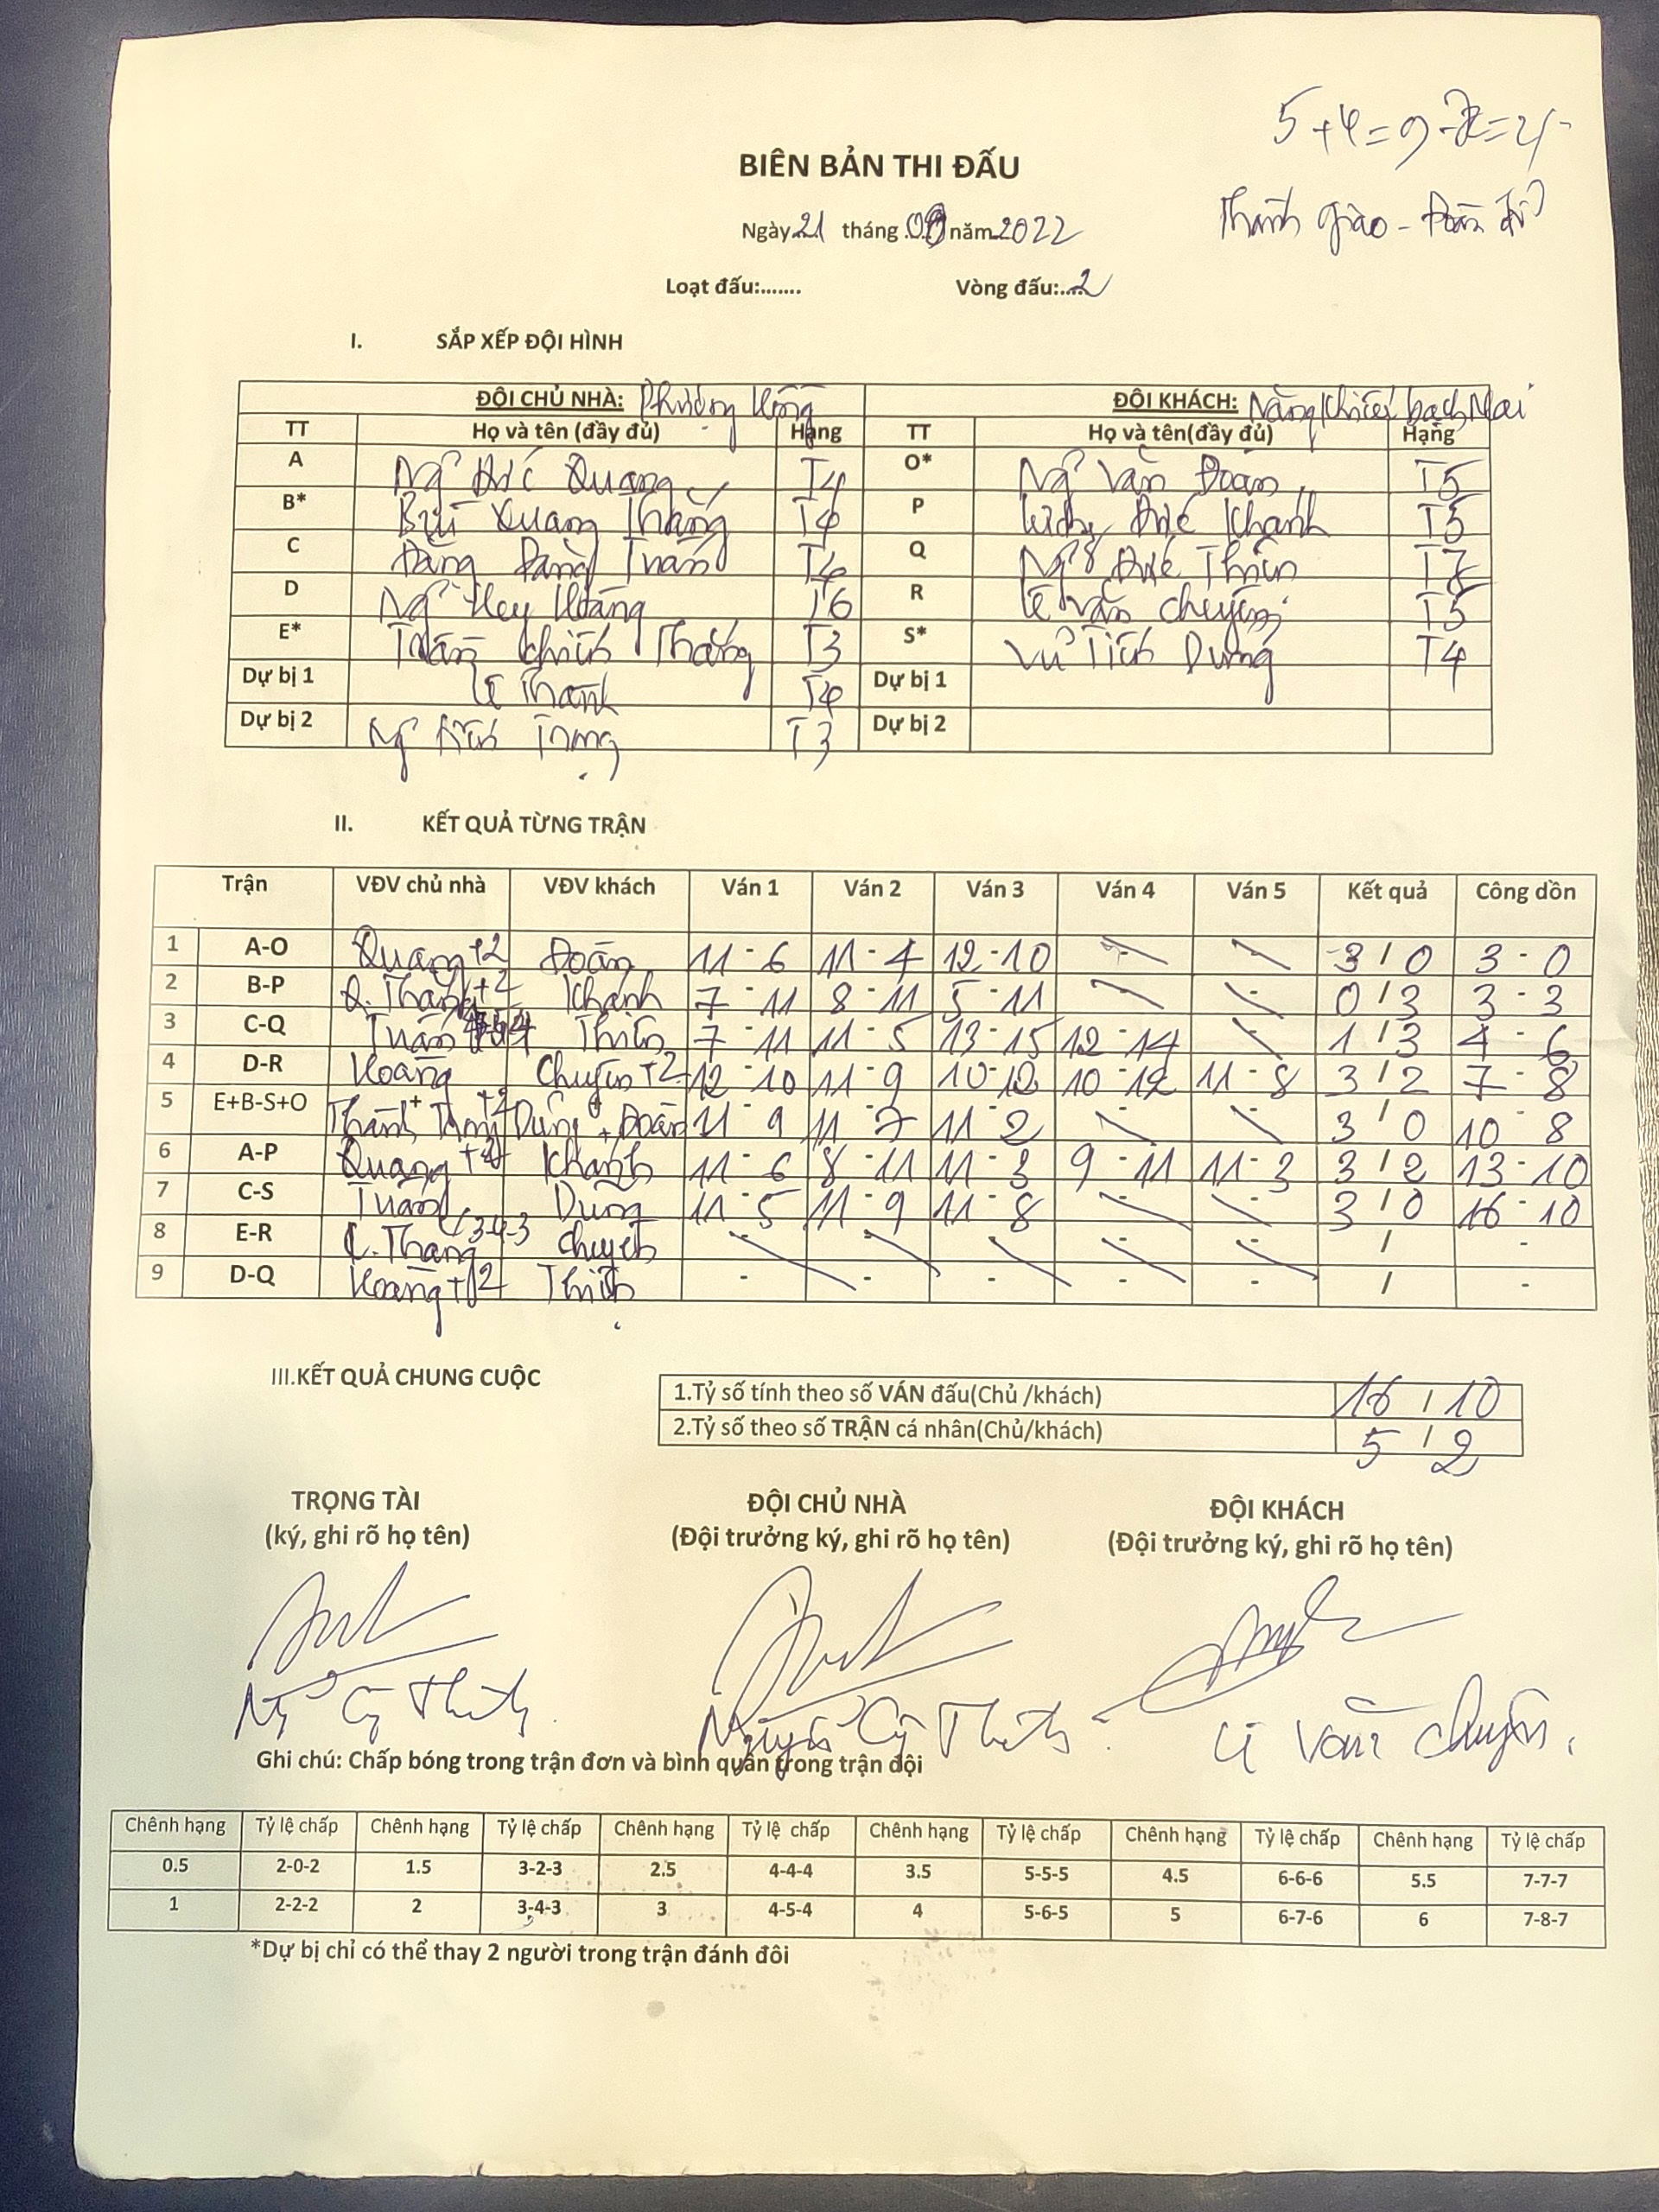 5+4=9-7=2
Thành Giao - Đoàn
BIÊN BẢN THI ĐẤU
Ngày 21 tháng 09 năm 2022
Loạt đấu:....... Vòng đấu:....2
I. SẮP XẾP ĐỘI HÌNH
ĐỘI CHỦ NHÀ: Phượng Hồng ĐỘI KHÁCH: Năng Khiếu bạch Mai
TT Họ và tên (đầy đủ) Hạng TT Họ và tên(đầy đủ) Hạng
A Ng Đức Quang T4 O* Ng Văn Đoàn T5
B* Bùi Quang Thắng T4 P Lương Đức Khánh T5
C Đặng Đăng Tuấn T4 Q Ng Đức Thiện T7
D Ng Huy Hoàng T6 R Lê Văn Chuyên T5
E* Trần Chính Thắng T3 S* Vũ Tiến Dũng T4
Dự bị 1 Lê Thành T4 Dự bị 1
Dự bị 2 Ng Trung T3 Dự bị 2
II. KẾT QUẢ TỪNG TRẬN
Trận VĐV chủ nhà VĐV khách Ván 1 Ván 2 Ván 3 Ván 4 Ván 5 Kết quả Công dồn
1 A-O Quang +2 Đoàn 11 - 6 11 - 4 12 - 10 - - 3 / 0 3 - 0
2 B-P Q. Thắng +2 Khánh 7 - 11 8 - 11 5 - 11 - - 0 / 3 3 - 3
3 C-Q Tuấn Thiện 7 - 11 11 - 5 13 - 15 12 - 14 - 1 / 3 4 - 6
4 D-R Hoàng Chuyên +2 12 - 10 11 - 9 10 - 12 10 - 12 11 - 8 3 / 2 7 - 8
5 E+B-S+O Thành + Trung +2 Dũng + Đoàn 11 - 9 11 - 7 11 - 2 - - 3 / 0 10 - 8
6 A-P Quang +2 Khánh 11 - 6 8 - 11 11 - 3 9 - 11 11 - 3 3 / 2 13 - 10
7 C-S Tuấn Dũng 11 - 5 11 - 9 11 - 8 - - 3 / 0 16 - 10
8 E-R C. Thắng +3-4-3 Chuyên - - - - - / -
9 D-Q Hoàng +2 Thiện - - - - - / -
III.KẾT QUẢ CHUNG CUỘC
1.Tỷ số tính theo số VÁN đấu(Chủ /khách) 16 / 10
2.Tỷ số theo số TRẬN cá nhân(Chủ/khách) 5 / 2
TRỌNG TÀI ĐỘI CHỦ NHÀ ĐỘI KHÁCH
(ký, ghi rõ họ tên) (Đội trưởng ký, ghi rõ họ tên) (Đội trưởng ký, ghi rõ họ tên)
Lê Văn Chuyên.
Ghi chú: Chấp bóng trong trận đơn và bình quân trong trận đội
Chênh hạng Tỷ lệ chấp Chênh hạng Tỷ lệ chấp Chênh hạng Tỷ lệ chấp Chênh hạng Tỷ lệ chấp Chênh hạng Tỷ lệ chấp Chênh hạng Tỷ lệ chấp
0.5 2-0-2 1.5 3-2-3 2.5 4-4-4 3.5 5-5-5 4.5 6-6-6 5.5 7-7-7
1 2-2-2 2 3-4-3 3 4-5-4 4 5-6-5 5 6-7-6 6 7-8-7
*Dự bị chỉ có thể thay 2 người trong trận đánh đôi